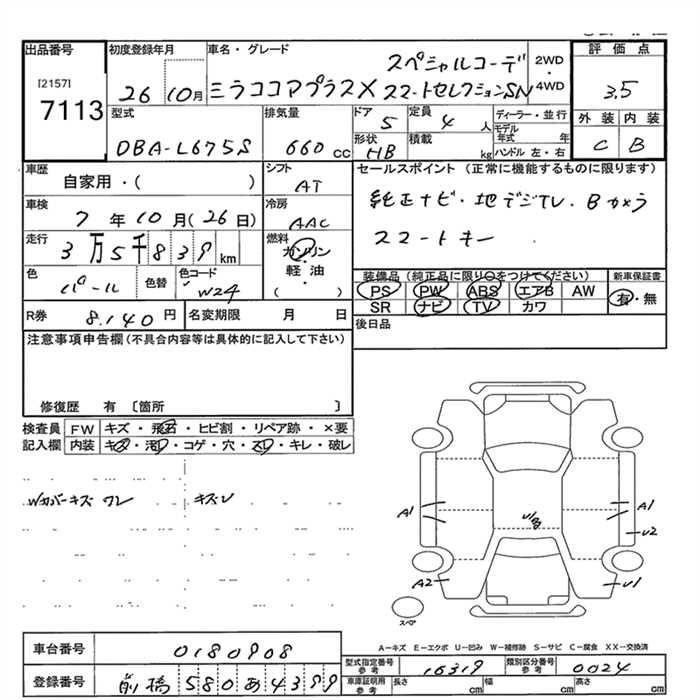 出品番号
[2157]
7113
初度登録年月
26 10月
車名・グレード
ミラココアプラスX
スペシャルコーデ
スマートセレクションSN
2WD
・
4WD
評価点
3.5
外装 内装
C B
型式
DBA-L675S
排気量
660 cc
ドア
5
定員
4 人
形状
HB
積載
kg
ディーラー・並行
モデル年式 年
ハンドル 左・右
車歴
自家用・( )
シフト
AT
車検
7年10月(26日)
冷房
AAC
走行
3万5千839km
燃料
ガソリン
・
軽油
・
( )
色
パール
色替
色コード
W24
R券
8,140円
名変期限 月 日
セールスポイント (正常に機能するものに限ります)
純正ナビ・地デジTV・Bカメラ
スマートキー
装備品(純正品に限り○をつけてください)
PS PW ABS エアB AW
SR ナビ TV カワ
新車保証書
有・無
後日品
注意事項申告欄(不具合内容等は具体的に記入して下さい)
修復歴 有 [箇所 ]
検査員記入欄
FW キズ・飛石・ヒビ割・リペア跡・×要
内装 キズ・汚れ・コゲ・穴・スレ・キレ・破レ
Wカバーキズ ワレ
キズU
A1
A2
U/多
A1
U2
U1
スペア
A-キズ E-エクボ U-凹み W-補修跡 S-サビ C-腐食 XX-交換済
車台番号
0180908
登録番号
前橋580あ4399
型式指定番号
参考
16319
類別区分番号
参考
0024
車庫証明用
参考
長さ cm
幅 cm
高さ cm